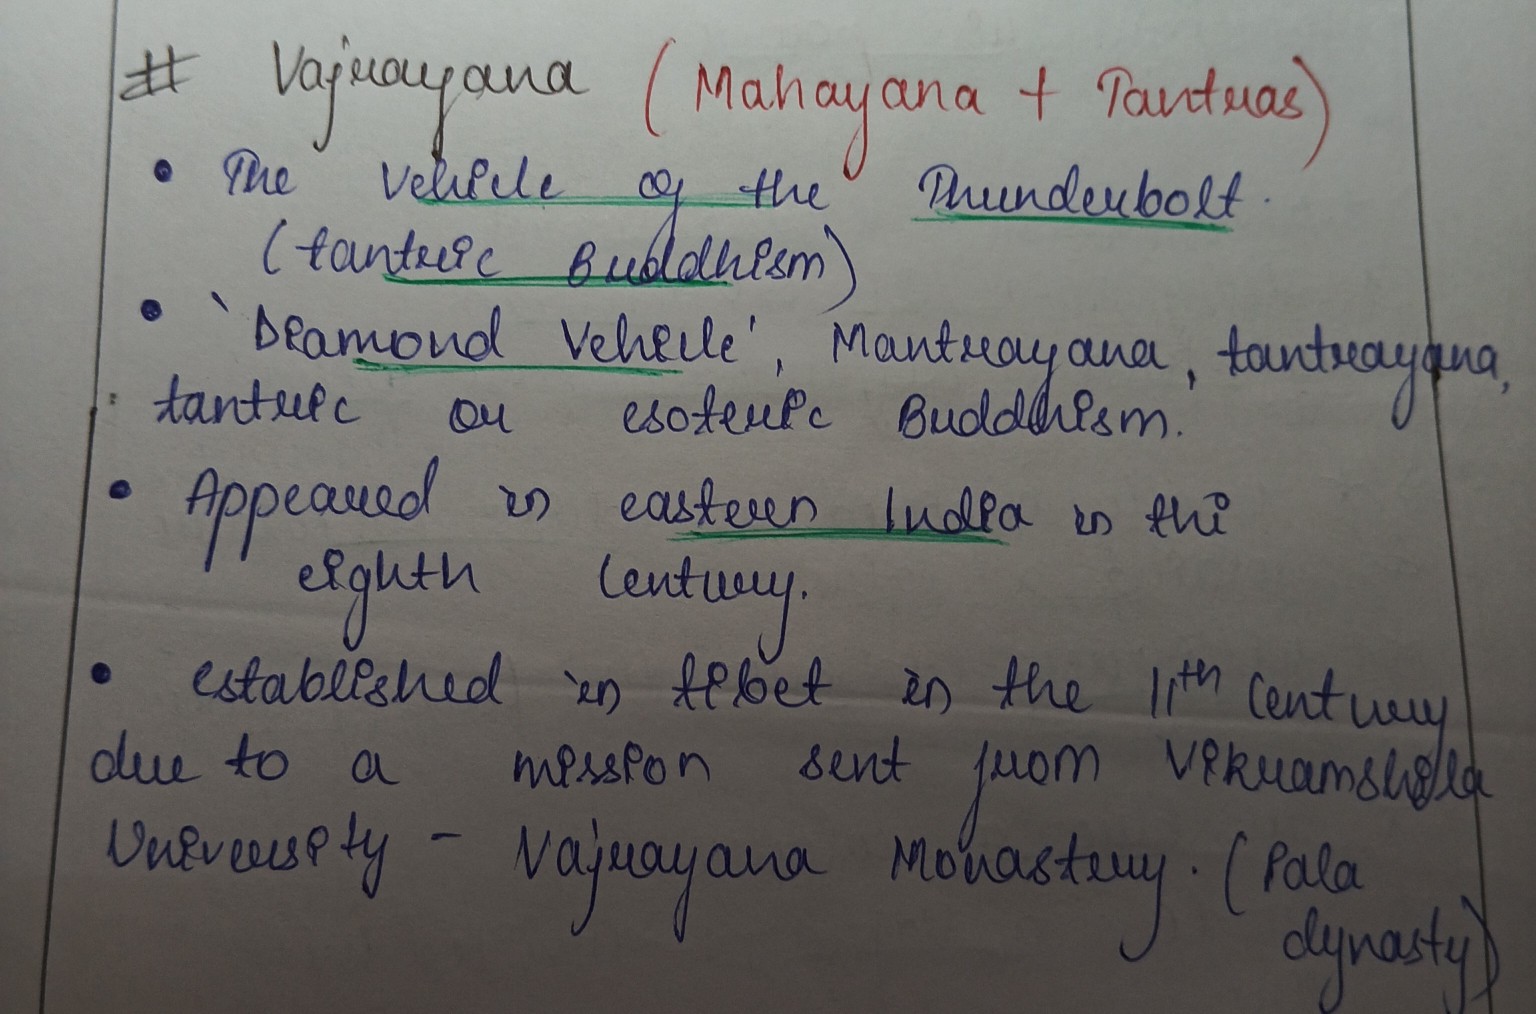 # Vajrayana (Mahayana + Tantras)
• The Vehicle of the Thunderbolt.
(tantric Buddhism)
• 'Diamond Vehicle', Mantrayana, tantrayana,
tantric or esoteric Buddhism.
• Appeared in eastern India in thi
eighth Century.
• established in tibet in the 11th Century
due to a mission sent from Vikramshila
University - Vajrayana Monastery. (Pala
dynasty)